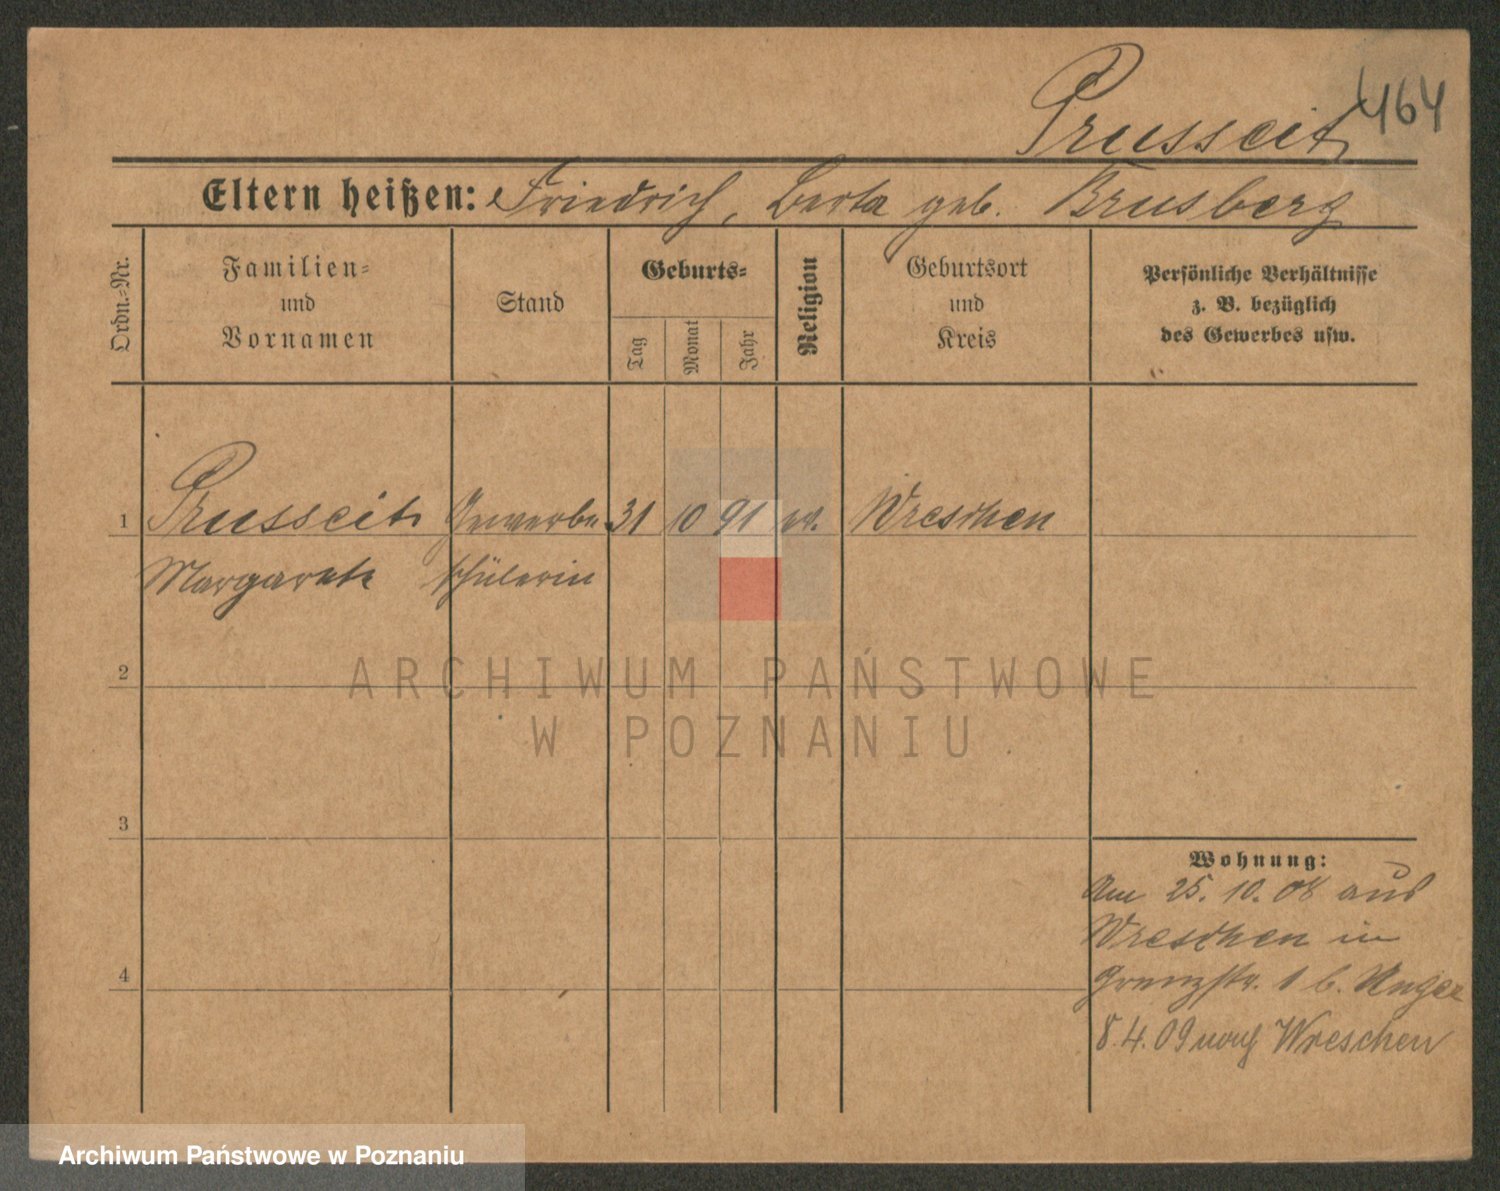 464
Prusseit
Eltern heißen: Friedrich, Berta geb. Brusberg
Ordn.-Nr.
Familien-
und
Vornamen
Stand
Geburts-
Tag
Monat
Jahr
Religion
Geburtsort
und
Kreis
Persönliche Verhältnisse
z. B. bezüglich
des Gewerbes usw.
1 Prusseit Gewerbe 31 10 91 ev. Wreschen
Margarete schülerin
2
3
4
Wohnung:
Am 25. 10. 08 aus
Wreschen in
Grenzstr. 1 b. Unger
8.4.09 nach Wreschen
ARCHIWUM PAŃSTWOWE
W POZNANIU
Archiwum Państwowe w Poznaniu